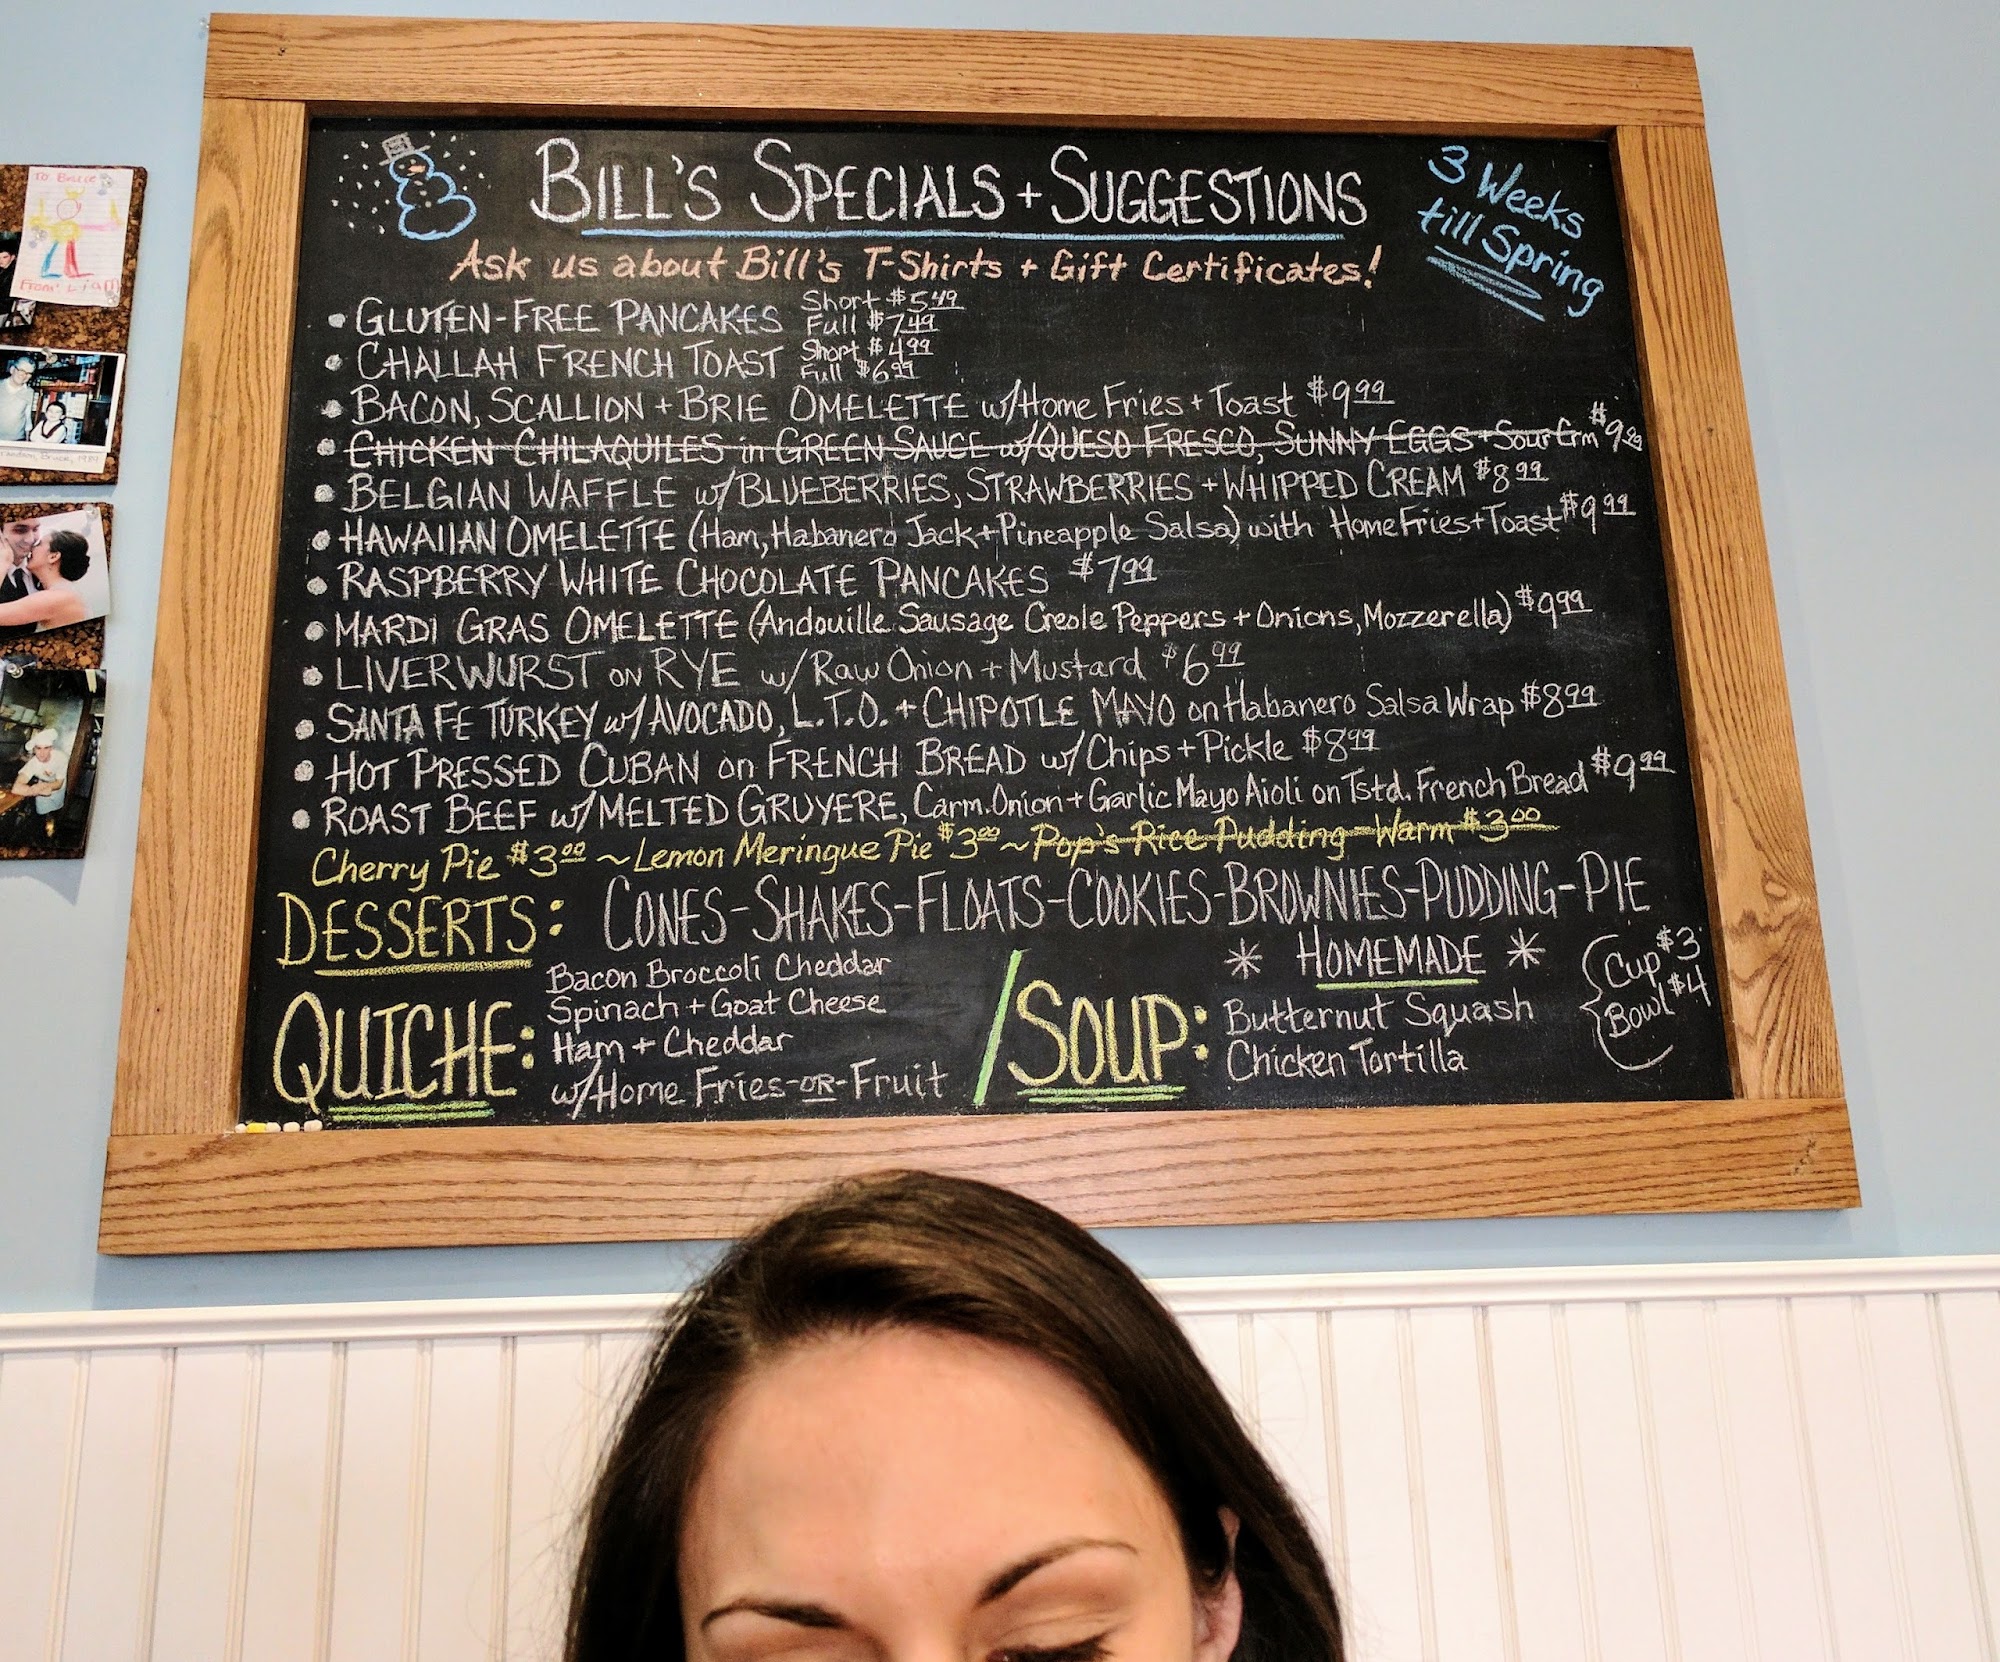 BILL'S SPECIALS + SUGGESTIONS
3 Weeks
till Spring
Ask us about Bill's T-Shirts + Gift Certificates!
• GLUTEN-FREE PANCAKES Short $5.49
Full $7.49
• CHALLAH FRENCH TOAST Short $4.99
Full $6.99
• BACON, SCALLION + BRIE OMELETTE w/Home Fries + Toast $9.99
• CHICKEN CHILAQUILES in GREEN SAUCE w/QUESO FRESCO, SUNNY EGGS + Sour Crm $9.99
• BELGIAN WAFFLE w/BLUEBERRIES, STRAWBERRIES + WHIPPED CREAM $8.99
• HAWAIIAN OMELETTE (Ham, Habanero Jack + Pineapple Salsa) with Home Fries + Toast $9.99
• RASPBERRY WHITE CHOCOLATE PANCAKES $7.99
• MARDI GRAS OMELETTE (Andouille Sausage Creole Peppers + Onions, Mozzerella) $9.99
• LIVERWURST ON RYE w/ Raw Onion + Mustard $6.99
• SANTA FE TURKEY w/ AVOCADO, L.T.O. + CHIPOTLE MAYO on Habanero Salsa Wrap $8.99
• HOT PRESSED CUBAN on FRENCH BREAD w/ Chips + Pickle $8.99
• ROAST BEEF w/MELTED GRUYERE, Carm. Onion + Garlic Mayo Aioli on Tstd. French Bread $9.99
Cherry Pie $3.00 ~ Lemon Meringue Pie $3.00 ~ Pop's Rice Pudding - Warm $3.00
DESSERTS: CONES-SHAKES-FLOATS-COOKIES-BROWNIES-PUDDING-PIE
QUICHE: Bacon Broccoli Cheddar
Spinach + Goat Cheese
Ham + Cheddar
w/Home Fries -OR- Fruit
/SOUP: * HOMEMADE *
Butternut Squash
Chicken Tortilla
Cup $3
Bowl $4
TO
From: